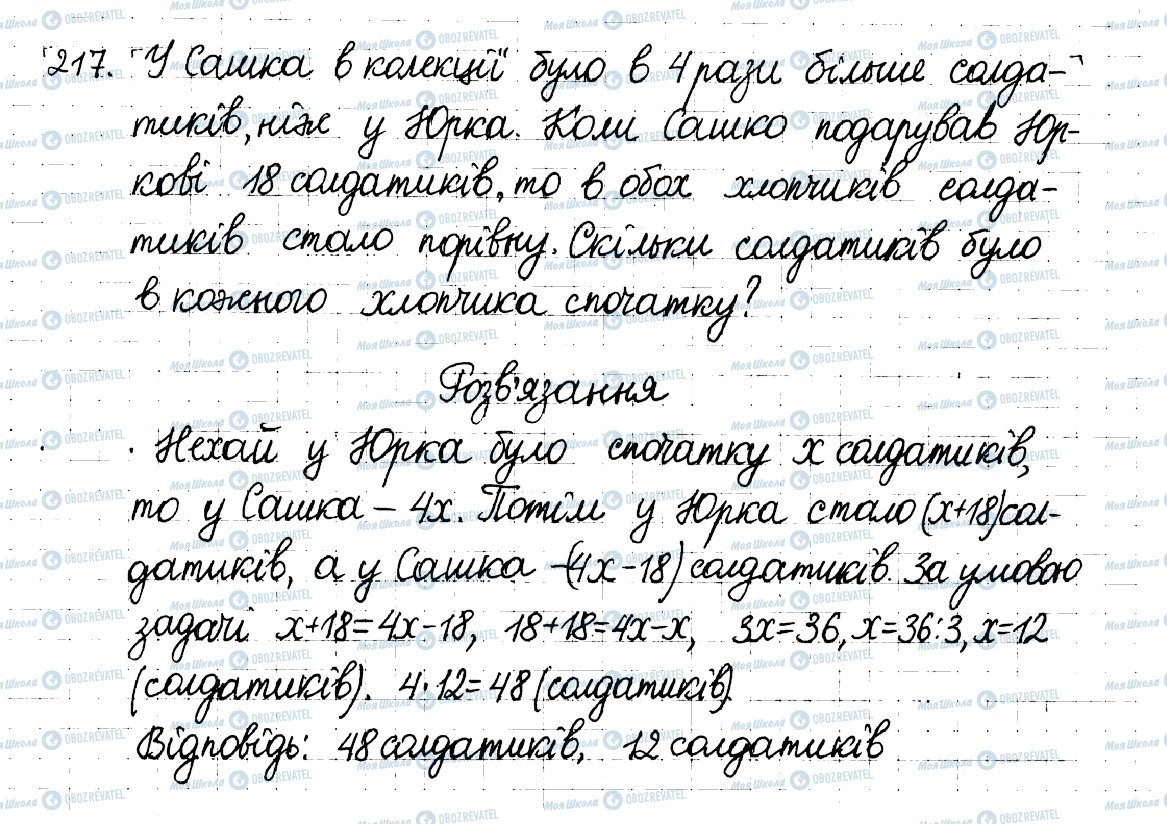 217. У Сашка в колекції було в 4 рази більше солда-
тиків, ніж у Юрка. Коли Сашко подарував Юр-
кові 18 солдатиків, то в обох хлопчиків солда-
тиків стало порівну. Скільки солдатиків було
в кожного хлопчика спочатку?
Розв'язання
Нехай у Юрка було спочатку x солдатиків,
то у Сашка – 4x. Потім у Юрка стало (x+18) сол-
датиків, а у Сашка – (4x-18) солдатиків. За умовою
задачі x+18=4x-18, 18+18=4x-x, 3x=36, x=36:3, x=12
(солдатиків). 4·12=48 (солдатиків).
Відповідь: 48 солдатиків, 12 солдатиків